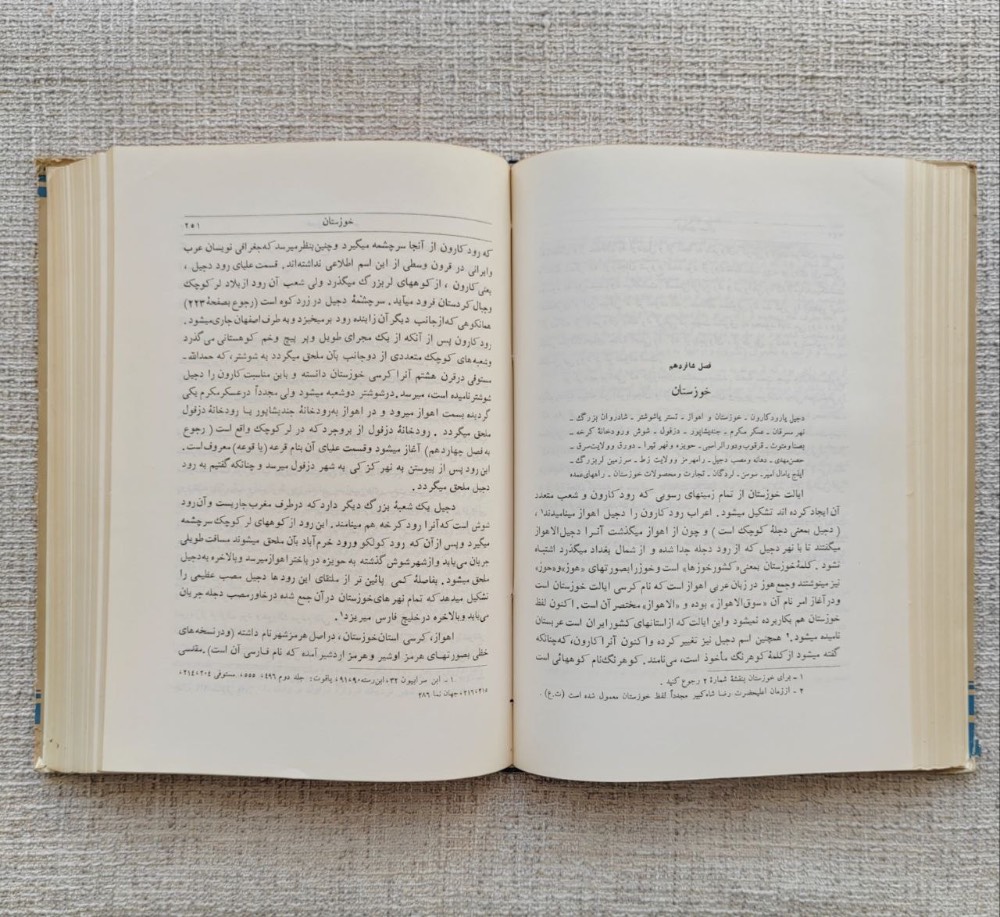 فصل شانزدهم
خوزستان
دجیل یا رود کارون ـ خوزستان و اهواز ـ تستر یا شوشتر ـ شادروان بزرگ ـ
نهر مسرقان ـ عسکر مکرم ـ جندیشاپور ـ دزفول ـ شوش و رودخانهٔ کرخه ـ
بصنا و متوث ـ قرقوب و دور الراسبی ـ حویزه و نهر تیرا ـ دورق و ولایت سرق ـ
حصن مهدی ـ دهانه و مصب دجیل ـ رامهرمز و ولایت زط ـ سرزمین لر بزرگ ـ
ایذج یا مال امیر ـ سوسن ـ لردگان ـ تجارت و محصولات خوزستان ـ راههای عمده
ایالت خوزستان از تمام زمینهای رسوبی که رود کارون و شعب متعدد
آن ایجاد کرده اند تشکیل میشود. اعراب رود کارون را دجیل اهواز مینامیدند۱
(دجیل بمعنی دجلهٔ کوچک است) و چون از اهواز میگذشت آنرا دجیل‌الاهواز
میگفتند تا با نهر دجیل که از رود دجله جدا شده و از شمال بغداد میگذرد اشتباه
نشود. کلمهٔ خوزستان بمعنی «کشور خوزها» است و خوز را بصورتهای «هوز» و «حوز»
نیز مینوشتند و جمع هوز در زبان عربی اهواز است که نام کرسی ایالت خوزستان است
و در آغاز امر نام آن «سوق الاهواز» بوده و «الاهواز» مختصر آن است. اکنون لفظ
خوزستان هم بکار برده نمیشود و این ایالت که از استانهای کشور ایران است عربستان
نامیده میشود.۲ همچنین اسم دجیل نیز تغییر کرده و اکنون آنرا کارون، که چنانکه
گفته میشود از کلمهٔ کوهرنگ مأخوذ است، می‌نامند. کوهرنگ نام کوههائی است
۱ ـ برای خوزستان بنقشهٔ شمارهٔ ۲ رجوع کنید.
۲ ـ از زمان اعلیحضرت رضا شاه کبیر مجدداً لفظ خوزستان معمول شده است (ت.ع).
خوزستان ۲۵۱
که رود کارون از آنجا سرچشمه میگیرد و چنین بنظر میرسد که جغرافی نویسان عرب
و ایرانی در قرون وسطی از این اسم اطلاعی نداشته‌اند. قسمت علیای رود دجیل،
یعنی کارون، از کوههای لر بزرگ میگذرد ولی شعب آن رود از بلاد لر کوچک
و جبال کردستان فرود میآید. سرچشمهٔ دجیل در زرد کوه است (رجوع بصفحهٔ ۲۲۳)
همانکوهی که از جانب دیگر آن زاینده رود بر میخیزد و به طرف اصفهان جاری میشود.
رود کارون پس از آنکه از یک مجرای طویل و پر پیچ وخم کوهستانی می‌گذرد
و شعبه‌های کوچک متعددی از دو جانب بآن ملحق میگردد به شوشتر، که حمدالله ـ
مستوفی در قرن هشتم آنرا کرسی خوزستان دانسته و باین مناسبت کارون را دجیل
شوشتر نامیده است، میرسد. در شوشتر دو شعبه میشود ولی مجدداً در عسکر مکرم یکی
گردیده بسمت اهواز میرود و در اهواز به رودخانهٔ جندیشاپور یا رودخانهٔ دزفول
ملحق میگردد. رودخانهٔ دزفول از بروجرد که در لر کوچک واقع است (رجوع
به فصل چهاردهم) آغاز میشود و قسمت علیای آن بنام قرعه (یا قوعه) معروف است.
این رود پس از پیوستن به نهر کز کی به شهر دزفول میرسد و چنانکه گفتیم به رود
دجیل ملحق میگردد.
دجیل یک شعبهٔ بزرگ دیگر دارد که در طرف مغرب جاریست و آن رود
شوش است که آنرا رود کرخه هم مینامند. این رود از کوههای لر کوچک سرچشمه
میگیرد و پس از آن که رود کولکو و رود خرم آباد بآن ملحق میشوند مسافت طویلی
جریان می‌یابد و از شهر شوش گذشته به حویزه در باختر اهواز میرسد و بالاخره به دجیل
ملحق میشود. بفاصلهٔ کمی پائین تر از ملتقای این رود ها دجیل مصب عظیمی را
تشکیل میدهد که تمام نهر های خوزستان در آن جمع شده در خاور مصب دجله جریان
می‌یابد و بالاخره در خلیج فارس میریزد۱.
اهواز، کرسی استان خوزستان، در اصل هرمز شهر نام داشته (و در نسخه‌های
خطی بصورتهای هرمز اوشیر و هرمز اردشیر آمده که نام فارسی آن است). مقدسی
۱ ـ ابن سرابیون ۳۲، ابن رسته ۹۰، ۹۱، یاقوت: جلد دوم ۴۹۶، ۵۵۵، مستوفی ۲۰۴، ۲۱۴،
۲۱۵، ۲۱۶، جهان نما ۲۸۶